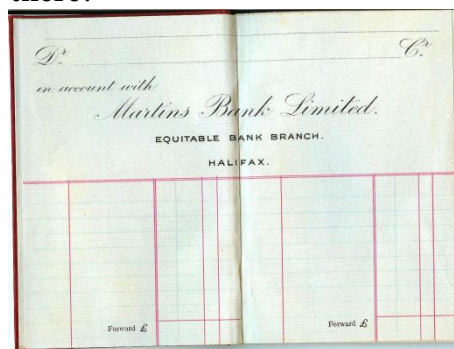 Dr. Cr.
in account with
Martins Bank Limited.
EQUITABLE BANK BRANCH.
HALIFAX.
Forward £ Forward £